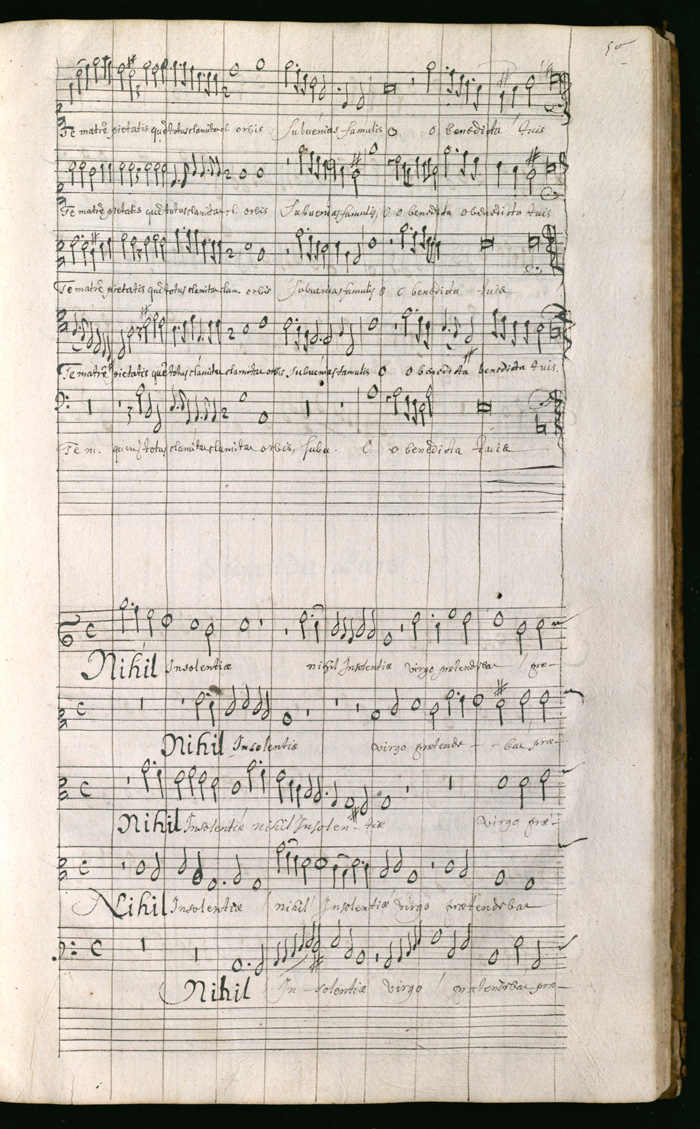 50
Te matrē pietatis quē totus clamitat cl. orbis Subuenias famulis O O benedicta tuis
Te matrē pietatis quē totus clamitat cl. orbis Subuenias famulis, O O benedicta o benedicta tuis
Te matrē pietatis quē totus clamitat clam. orbis Subuenias famulis O O benedicta tuis
Te matrē pietatis quē totus clamitat clamitat orbis, Subuenias famulis O O benedicta benedicta tuis.
Te m. quem totus clamitat clamitat orbis, subu. O o benedicta tuis
Nihil Insolentiæ nihil Insolentiæ virgo prætendebat præ-
Nihil Insolentiæ virgo prætende - - bat præ-
Nihil Insolentiæ nihil Insolen - tiæ Virgo præ-
Nihil Insolentiæ nihil Insolentiæ virgo prætendebat
Nihil In - solentiæ virgo prætendebat præ-